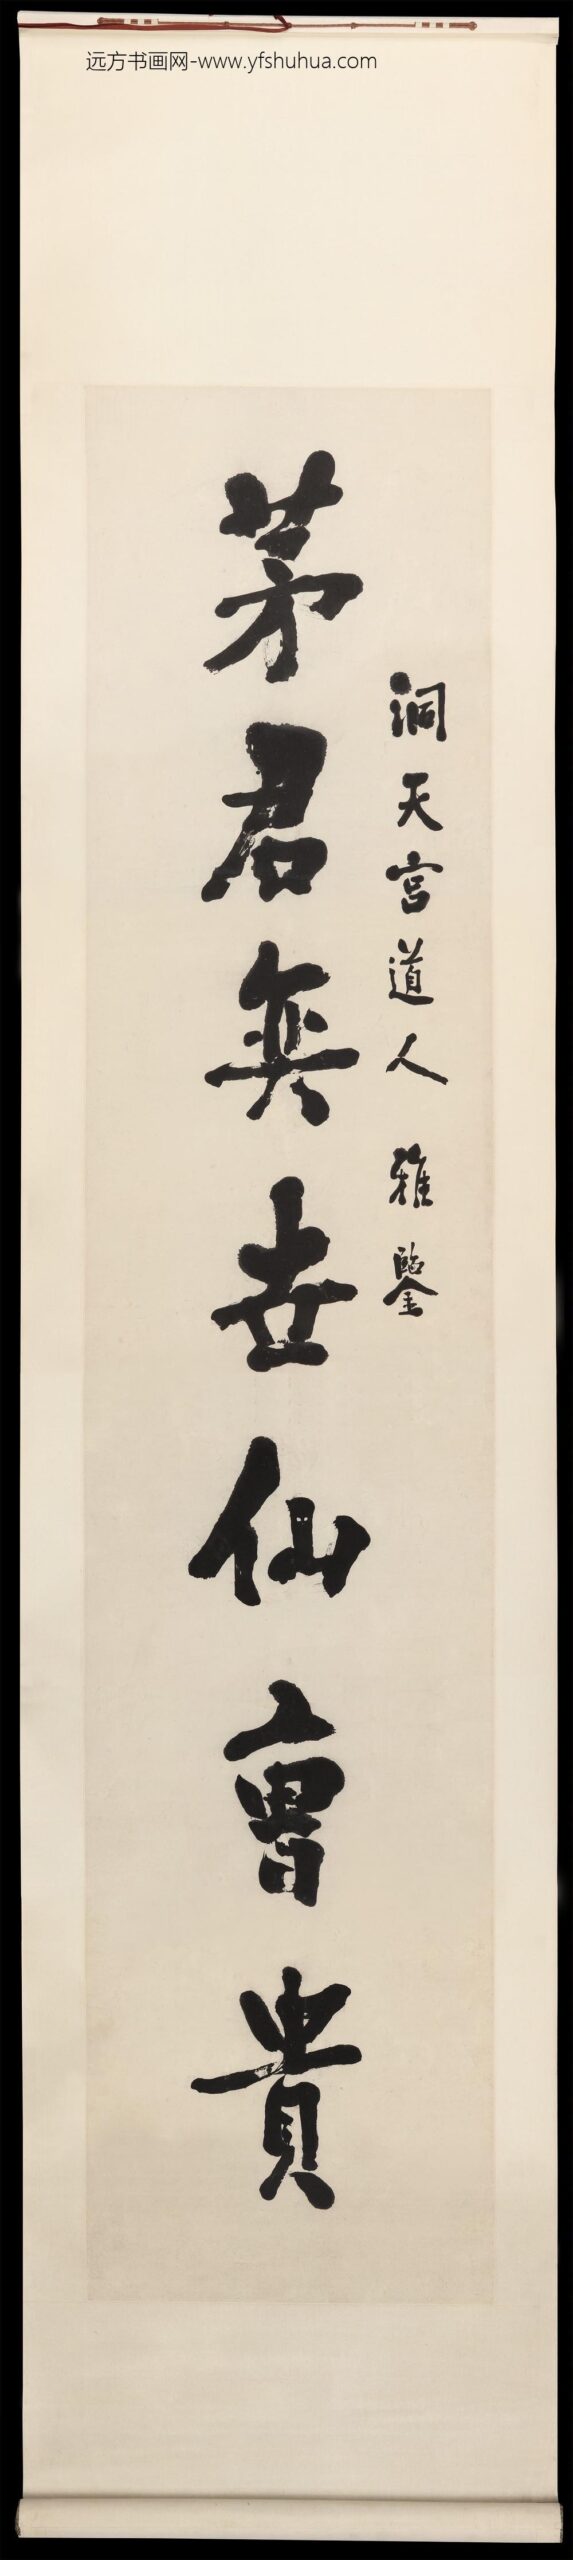 远方书画网-www.yfshuhua.com
洞天宫道人 雅鑒
茅君奕世仙曹貴